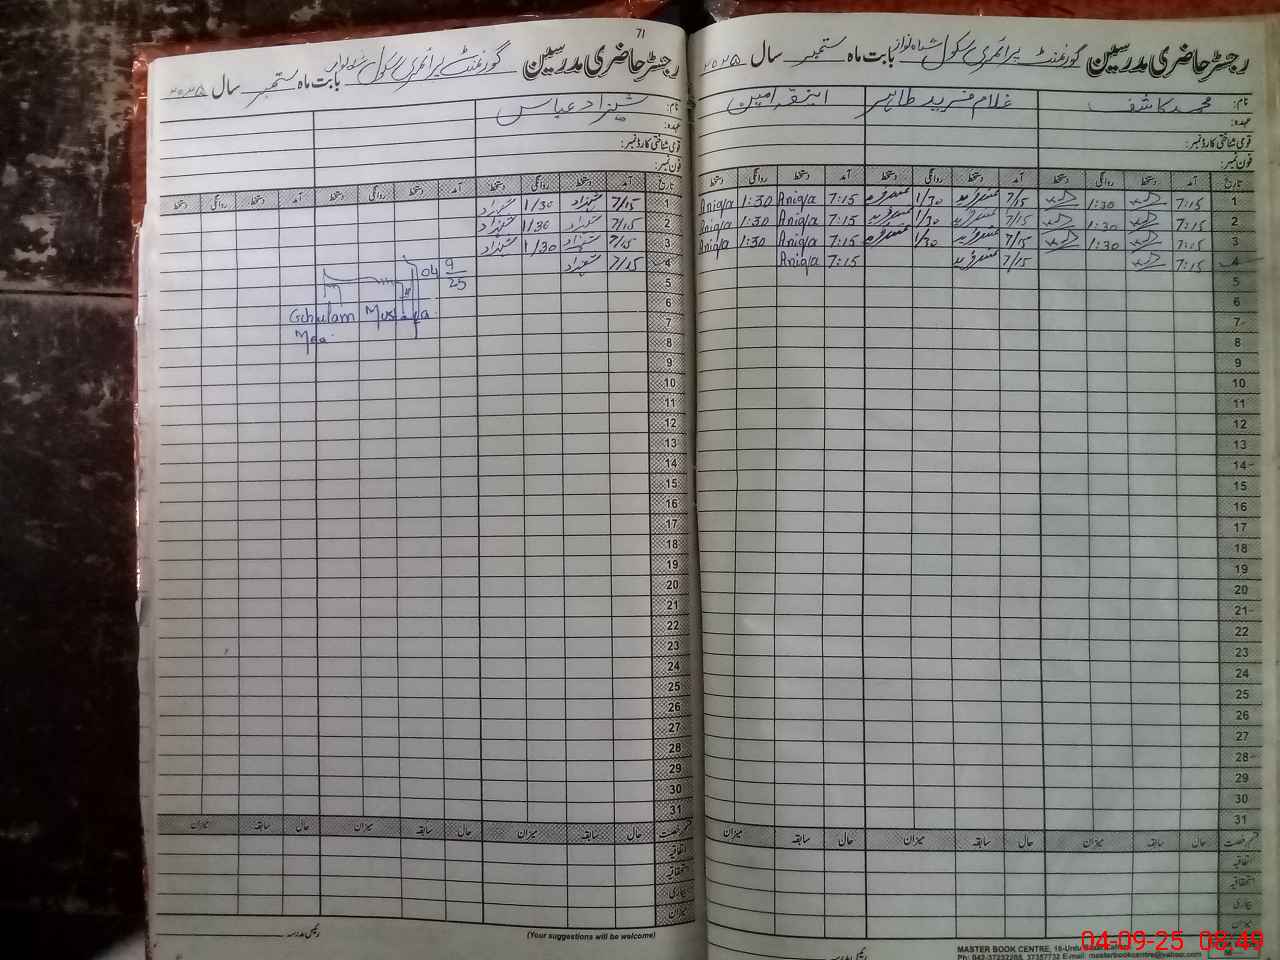 رجسٹر حاضری مدرسین گورنمنٹ پرائمری سکول شاہ نواز بابت ماہ ستمبر سال ۲۰۲۵
نام: محمد کاشف غلام فرید طاہر انیقہ امین
عہدہ:
قومی شناختی کارڈ نمبر:
فون نمبر:
تاریخ آمد دستخط روانگی دستخط آمد دستخط روانگی دستخط آمد دستخط روانگی دستخط
1 7:15 1:30 7/15 1/30 7:15 Aniqa 1:30 Aniqa
2 7:15 1:30 7/15 1/30 7:15 Aniqa 1:30 Aniqa
3 7:15 1:30 7/15 1/30 7:15 Aniqa 1:30 Aniqa
4 7:15 7/15 7:15 Aniqa
5
6
7
8
9
10
11
12
13
14
15
16
17
18
19
20
21
22
23
24
25
26
27
28
29
30
31
قسم رخصت حال سابقہ میزان حال سابقہ میزان حال سابقہ میزان
اتفاقیہ
استحقاقیہ
بیماری
میزان
MASTER BOOK CENTRE, 16-Urdu
Ph: 042-37232265, 37357732 E-mail: masterbookcentre@yahoo.com
71
رجسٹر حاضری مدرسین گورنمنٹ پرائمری سکول بابت ماہ ستمبر سال ۲۰۲۵
نام: شہزاد عباس
عہدہ:
قومی شناختی کارڈ نمبر:
فون نمبر:
تاریخ آمد دستخط روانگی دستخط آمد دستخط روانگی دستخط آمد دستخط روانگی دستخط
1 7/15 شہزاد 1/30 شہزاد
2 7/15 شہزاد 1/30 شہزاد
3 7/15 شہزاد 1/30 شہزاد
4 7/15 شہزاد
04 9/25
Ghulam Mustafa
5
6
7
8
9
10
11
12
13
14
15
16
17
18
19
20
21
22
23
24
25
26
27
28
29
30
31
قسم رخصت حال سابقہ میزان حال سابقہ میزان حال سابقہ میزان
اتفاقیہ
استحقاقیہ
بیماری
میزان
رئیس مدرسہ
(Your suggestions will be welcome)
04-09-25 08:49